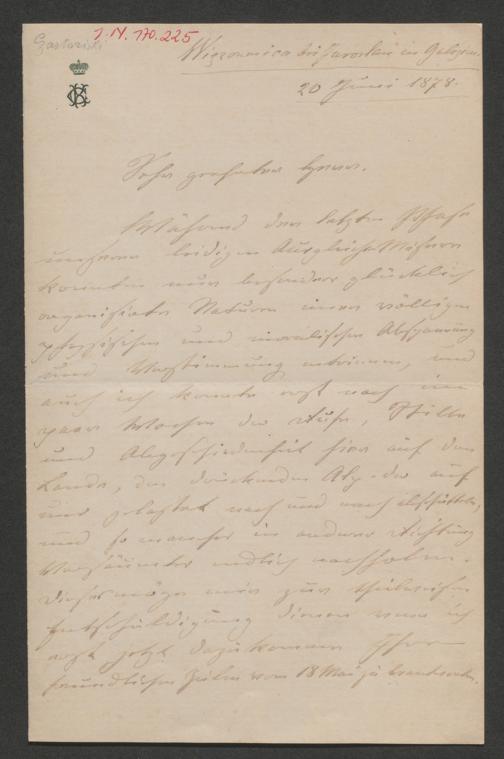 Czartoriski
I.N. 170.225
Wiązownica bei Jaroslau in Galizien
20 Juni 1878.
Sehr geehrter Herr.
Während der letzten Phase
unserer leidigen Ausgleichs
konnten nur besonders glücklich
organisirte Naturen einer völligen
physischen und moralischen Abspannung
und Verstimmung entrinnen, und
auch ich konnte erst nach ein
paar Wochen der Ruhe, Stille
und Abgeschiedenheit hier auf dem
Lande, den drückenden Alp der auf
mir gelastet nach und nach abschütteln,
und so manches in anderer Richtung
Versäumte endlich nachholen.
Dieses möge mir zur theilweisen
Entschuldigung dienen wenn ich
erst jetzt dazu komme Ihre
freundlichen Zeilen vom 18 Mai zu beantworten.